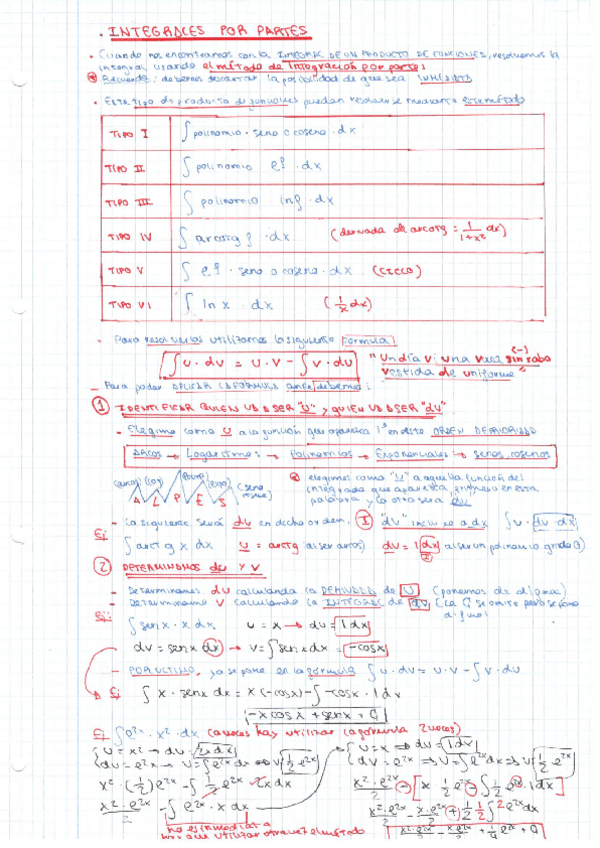 . INTEGRALES POR PARTES
· Cuando nos encontramos con la INTEGRAL DE UN PRODUCTO DE FUNCIONES, resolvemos la
integral usando el método de integración por partes
Recuerda: debemos descartar la posibilidad de que sea INMEDIATA
· Este tipo de producto de funciones pueden resolverse mediante este método
TIPO I ∫ polinomio · seno o coseno · dx
TIPO II ∫ polinomio e^f · dx
TIPO III ∫ polinomio ln f · dx
TIPO IV ∫ arcotg f · dx (derivada de arcotg = 1/(1+x²) dx)
TIPO V ∫ e^f · seno o coseno · dx (CICLO)
TIPO VI ∫ ln x · dx (1/x dx)
- Para resolverlas utilizamos la siguiente formula:
∫ u · dv = u · v - ∫ v · du "Un día vi una vaca sin rabo (-)
vestida de uniforme"
- Para poder APLICAR LA FORMULA antes debemos:
1 IDENTIFICAR QUIEN VA A SER "U" y QUIEN VA A SER "dv"
- Elegimos como U a la función que aparezca 1º en este ORDEN DE PRIORIDAD
Arcos → Logaritmos → Polinomios → Exponenciales → senos, cosenos
(arcos) (log) (polin) (expo) (seno
A L P E S
elegimos como "U" a aquella función del
integrado que aparezca primero en esta
palabra y la otra será dv
- La siguiente será dv en dicho orden. I "dv" incluye a dx ∫ u · dv · dx
Ej: ∫ arctg x dx u = arctg (al ser arcos) dv = 1 dx (al ser un polinomio grado 0)
2 DETERMINAMOS du y v
- Determinamos du calculando la DERIVADA de U (ponemos dx al final)
- Determinamos v calculando la INTEGRAL de dv (la C se omite pero se pone
al final
Ej: ∫ sen x · x · dx u = x → du = 1 dx
dv = sen x dx → v = ∫ sen x dx = -cos x
- POR ULTIMO, ya se pone en la fórmula ∫ u · dv = u · v - ∫ v · du
Ej ∫ x · senx dx = x (-cosx) - ∫ -cosx · 1 dx
-x cos x + sen x + C
Ej ∫ e^2x · x² · dx (a veces hay utilizar la fórmula 2 veces)
u = x² → du = 2x dx
dv = e^2x → v = ∫ e^2x dx → v = 1/2 e^2x
x² · (1/2) e^2x - ∫ 1/2 e^2x · 2x dx
x² · e^2x / 2 - ∫ e^2x · x dx
no es inmediata
hay que utilizar otra vez el método
u = x → du = 1 dx
dv = e^2x → v = ∫ e^2x dx → v = 1/2 e^2x
x² · e^2x / 2 - [x · 1/2 e^2x - ∫ 1/2 e^2x · 1 dx]
x² · e^2x / 2 - x · e^2x / 2 + 1/2 · 1/2 ∫ 2 e^2x dx
x² · e^2x / 2 - x · e^2x / 2 + 1/4 e^2x + C